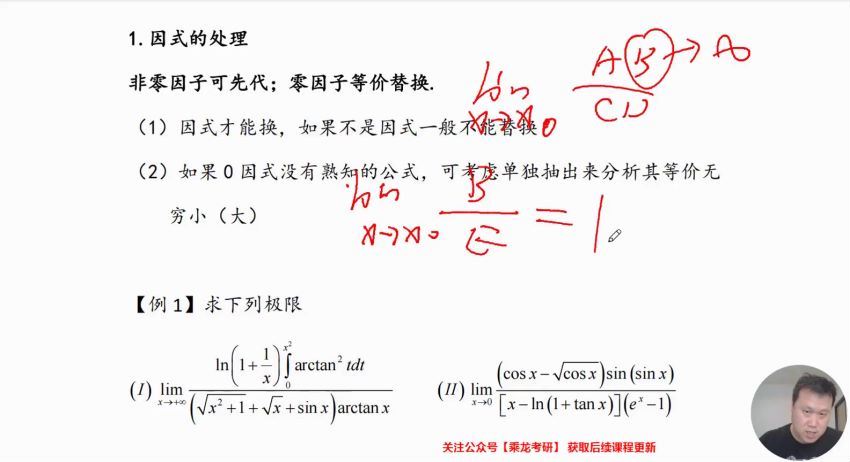 1.因式的处理
非零因子可先代；零因子等价替换.
lim x→x0 AB/CD → ∞
（1）因式才能换，如果不是因式一般不能替换
（2）如果 0 因式没有熟知的公式，可考虑单独抽出来分析其等价无
穷小（大）
lim x→x0 B/E = 1
【例 1】求下列极限
(I) lim x→+∞ ln(1+1/x)∫₀^{x²} arctan² tdt / (√(x²+1)+√x+sin x)arctan x
(II) lim x→0 (cos x−√cos x)sin(sin x) / [x−ln(1+tan x)](eˣ−1)
关注公众号【乘龙考研】 获取后续课程更新